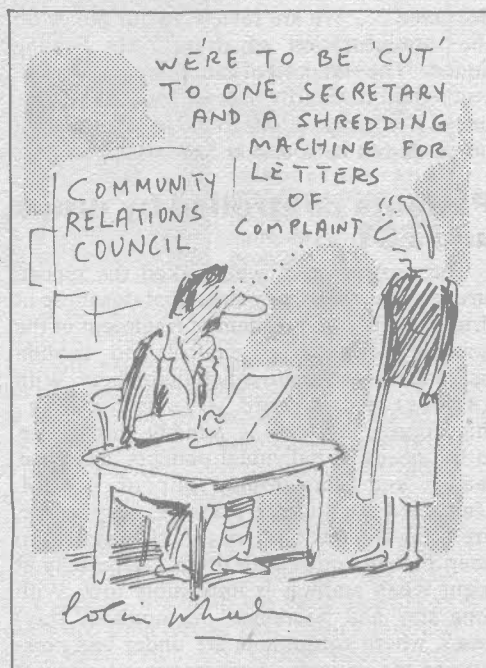 WE'RE TO BE 'CUT'
TO ONE SECRETARY
AND A SHREDDING
MACHINE FOR
LETTERS
OF
COMPLAINT
COMMUNITY
RELATIONS
COUNCIL
Colin Wheeler